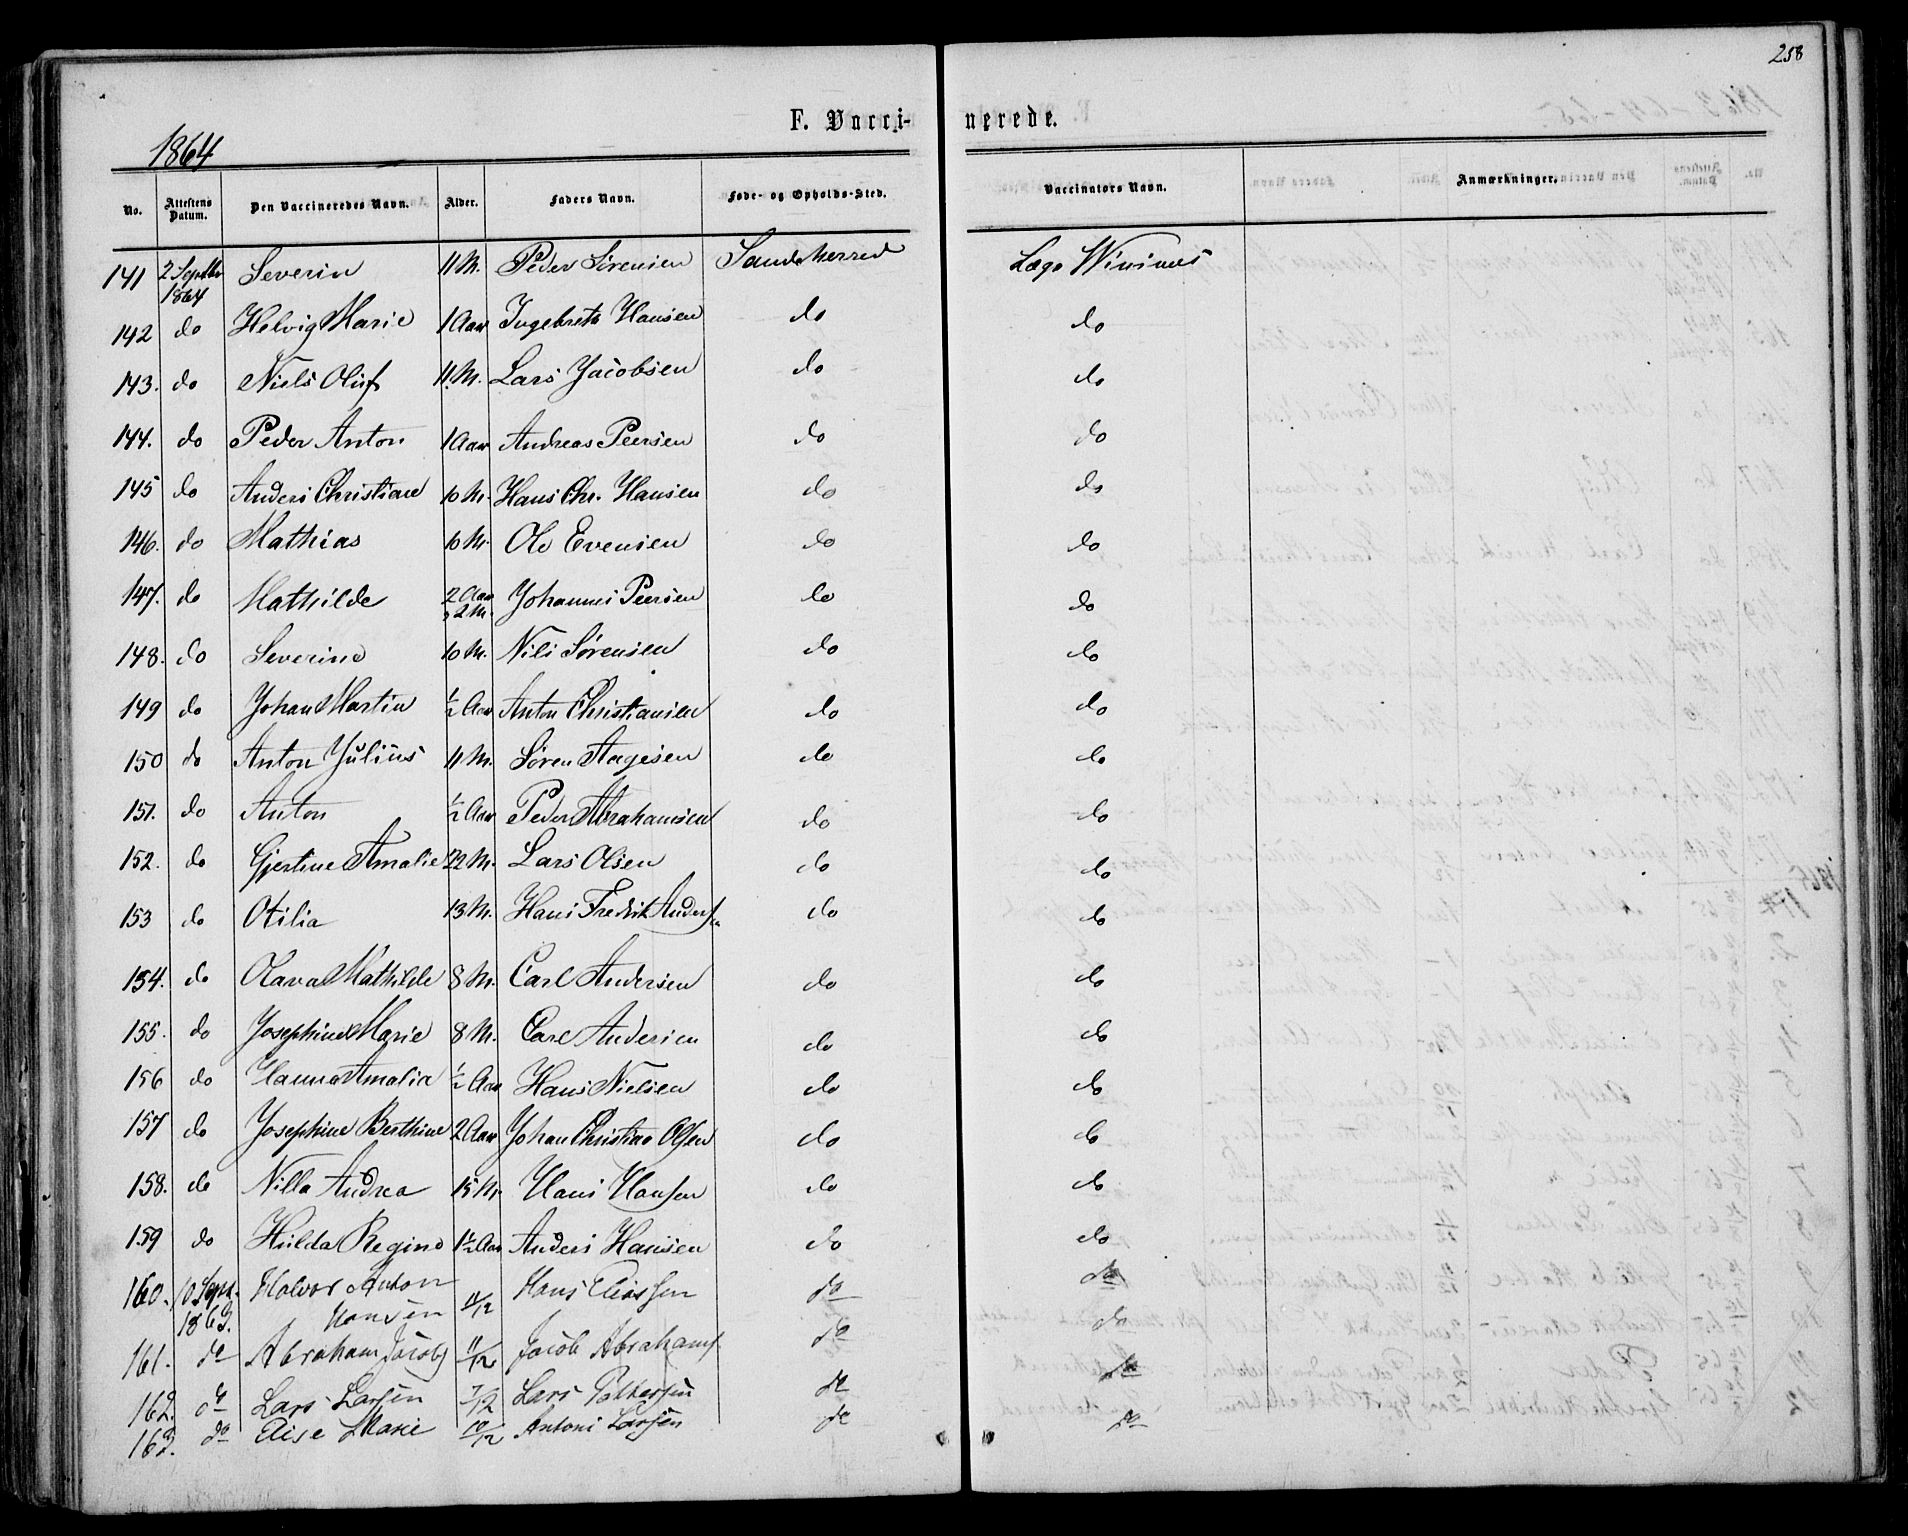 258
F. Vacci- nerede.
1864
No. Attestens Datum. Den Vaccineredes Navn. Alder. Faders Navn. Føde- og Opholds-Sted. Vaccinators Navn. Anmærkninger.
141 2 Septbr 1864 Severin 11 M. Peder Sørensen Sandeherred Læge Winsnes
142 do Helvig Marie 1 Aar Ingebreth Hansen do do
143. do Niels Oluf 11 M. Lars Jacobsen do do
144. do Peder Anton 1 Aar Andreas Peersen do do
145 do Anders Christian 10 M. Hans Chr. Hansen do do
146. do Mathias 10 M. Ole Evensen do do
147. do Mathilde 2 Aar 2 M. Johannes Peersen do do
148. do Severine 10 M. Nils Sørensen do do
149 do Johan Martin 1/2 Aar Anton Christiansen do do
150 do Anton Julius 11 M. Søren Aagesen do do
151. do Anton 1/2 Aar Peder Abrahamsen do do
152. do Gjertine Amalie 22 M. Lars Olsen do do
153 do Otilia 13 M. Hans Fredrik Andersen do do
154. do Olava Mathilde 8 M. Carl Andersen do do
155. do Josephine Marie 8 M. Carl Andersen do do
156 do Hanna Amalia 1/2 Aar Hans Nielsen do do
157 do Josephine Berthine 2 Aar Johan Christian Olsen do do
158. do Nilla Andrea 15 M. Hans Hansen do do
159 do Hilda Regine 1 1/2 Aar Anders Hansen do do
160. 10 Sept. 1863. Halvor Anton Hansen 11/12 Hans Eliassen do do
161. do Abraham Jacobs 11/12 Jacob Abrahams. do do
162. do Lars Larsen 7/12 Lars Pettersen do do
163. do Elise Marie 10/12 Antoni Larsen do do